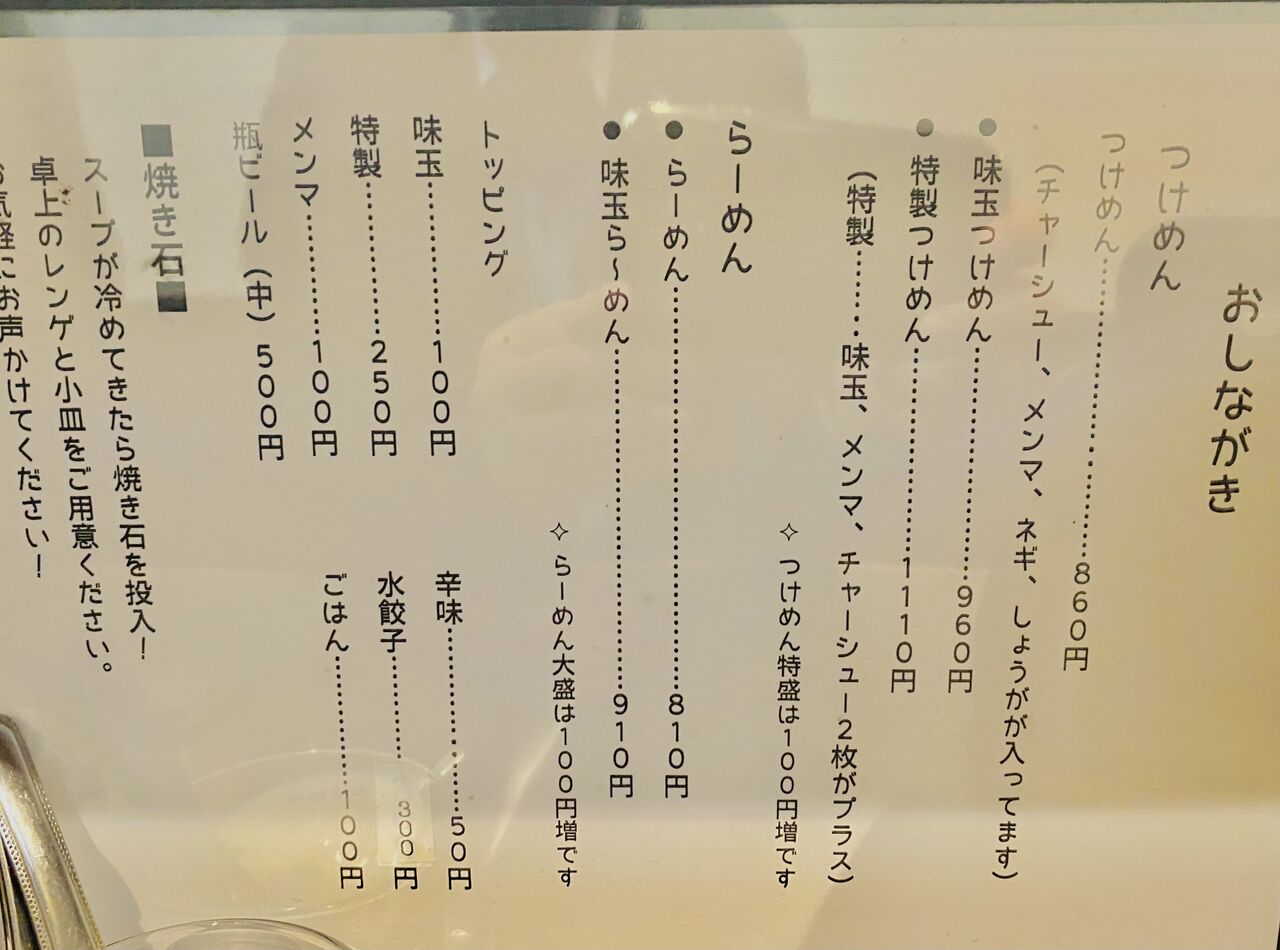 おしながき
つけめん
つけめん‥‥‥‥‥‥‥‥860円
(チャーシュー、メンマ、ネギ、しょうがが入ってます)
●味玉つけめん‥‥‥‥‥‥960円
●特製つけめん‥‥‥‥‥‥1110円
(特製‥‥‥味玉、メンマ、チャーシュー2枚がプラス)
✧つけめん特盛は100円増です
らーめん
●らーめん‥‥‥‥‥‥‥‥810円
●味玉ら～めん‥‥‥‥‥‥910円
✧らーめん大盛は100円増です
トッピング
味玉‥‥‥‥100円
特製‥‥‥‥250円
メンマ‥‥‥100円
辛味‥‥‥‥50円
水餃子‥‥‥300円
ごはん‥‥‥100円
瓶ビール(中)500円
■焼き石■
スープが冷めてきたら焼き石を投入!
卓上のレンゲと小皿をご用意ください。
お気軽にお声かけてください!